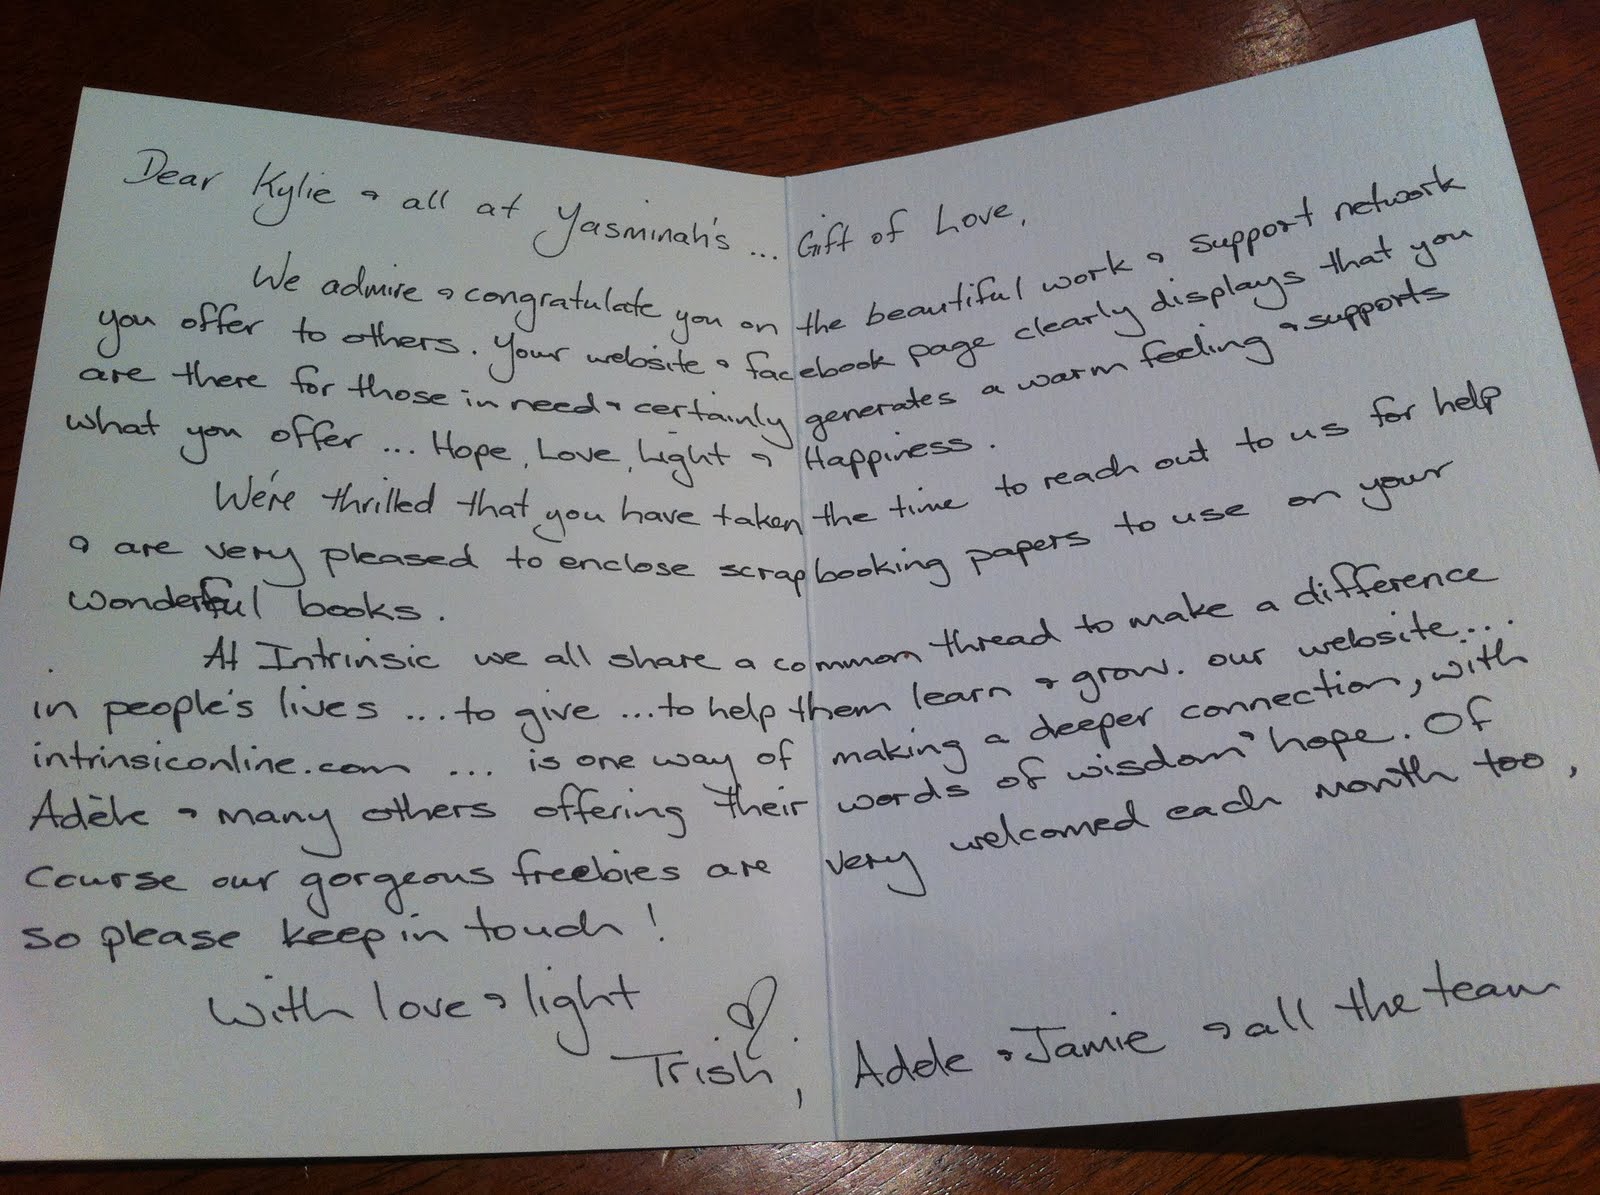 Dear Kylie & all at Yasminah's ... Gift of Love,
We admire & congratulate you on the beautiful work & support network
you offer to others. Your website & facebook page clearly displays that you
are there for those in need & certainly generates a warm feeling & supports
what you offer ... Hope, Love, Light & Happiness.
We're thrilled that you have taken the time to reach out to us for help
& are very pleased to enclose scrapbooking papers to use on your
wonderful books.
At Intrinsic we all share a common thread to make a difference
in people's lives ... to give ... to help them learn & grow. Our website ...
intrinsiconline.com ... is one way of making a deeper connection, with
Adèle & many others offering their words of wisdom & hope. Of
course our gorgeous freebies are very welcomed each month too,
so please keep in touch!
With love & light
Trish, Adele & Jamie & all the team